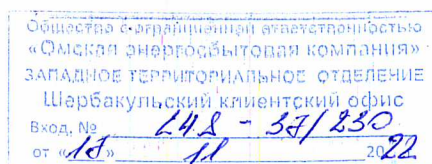 Общество с ограниченной ответственностью
«Омская энергосбытовая компания»
ЗАПАДНОЕ ТЕРРИТОРИАЛЬНОЕ ОТДЕЛЕНИЕ
Шербакульский клиентский офис
Вход. № - 37/230
от «17» 11 2022